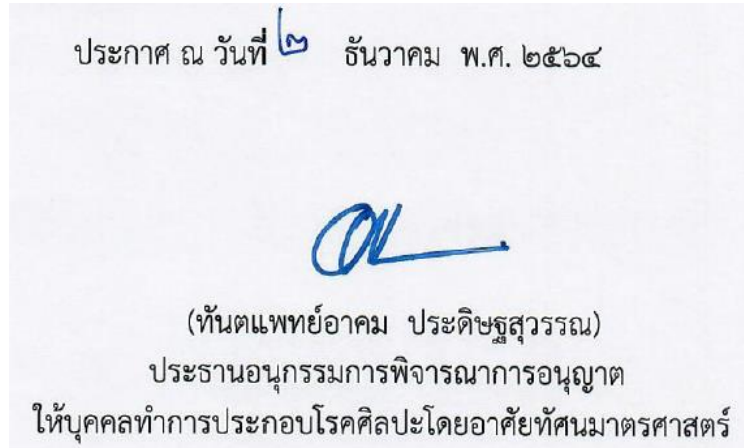 ประกาศ ณ วันที่ ๒ ธันวาคม พ.ศ. ๒๕๖๔
(ทันตแพทย์อาคม ประดิษฐสุวรรณ)
ประธานอนุกรรมการพิจารณาการอนุญาต
ให้บุคคลทำการประกอบโรคศิลปะโดยอาศัยทัศนมาตรศาสตร์